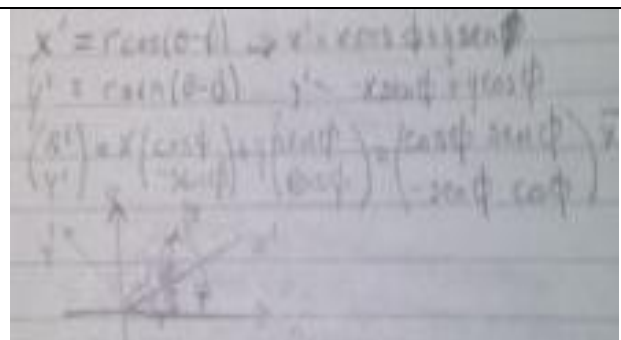 x' = r cos(θ-ϕ) ⇒ x' = x cos ϕ + y sen ϕ
y' = r sen(θ-ϕ) y' = -x sen ϕ + y cos ϕ
(x' y') = x (cos ϕ -sen ϕ) + y (sen ϕ cos ϕ) = (cos ϕ sen ϕ -sen ϕ cos ϕ) x
y' x'